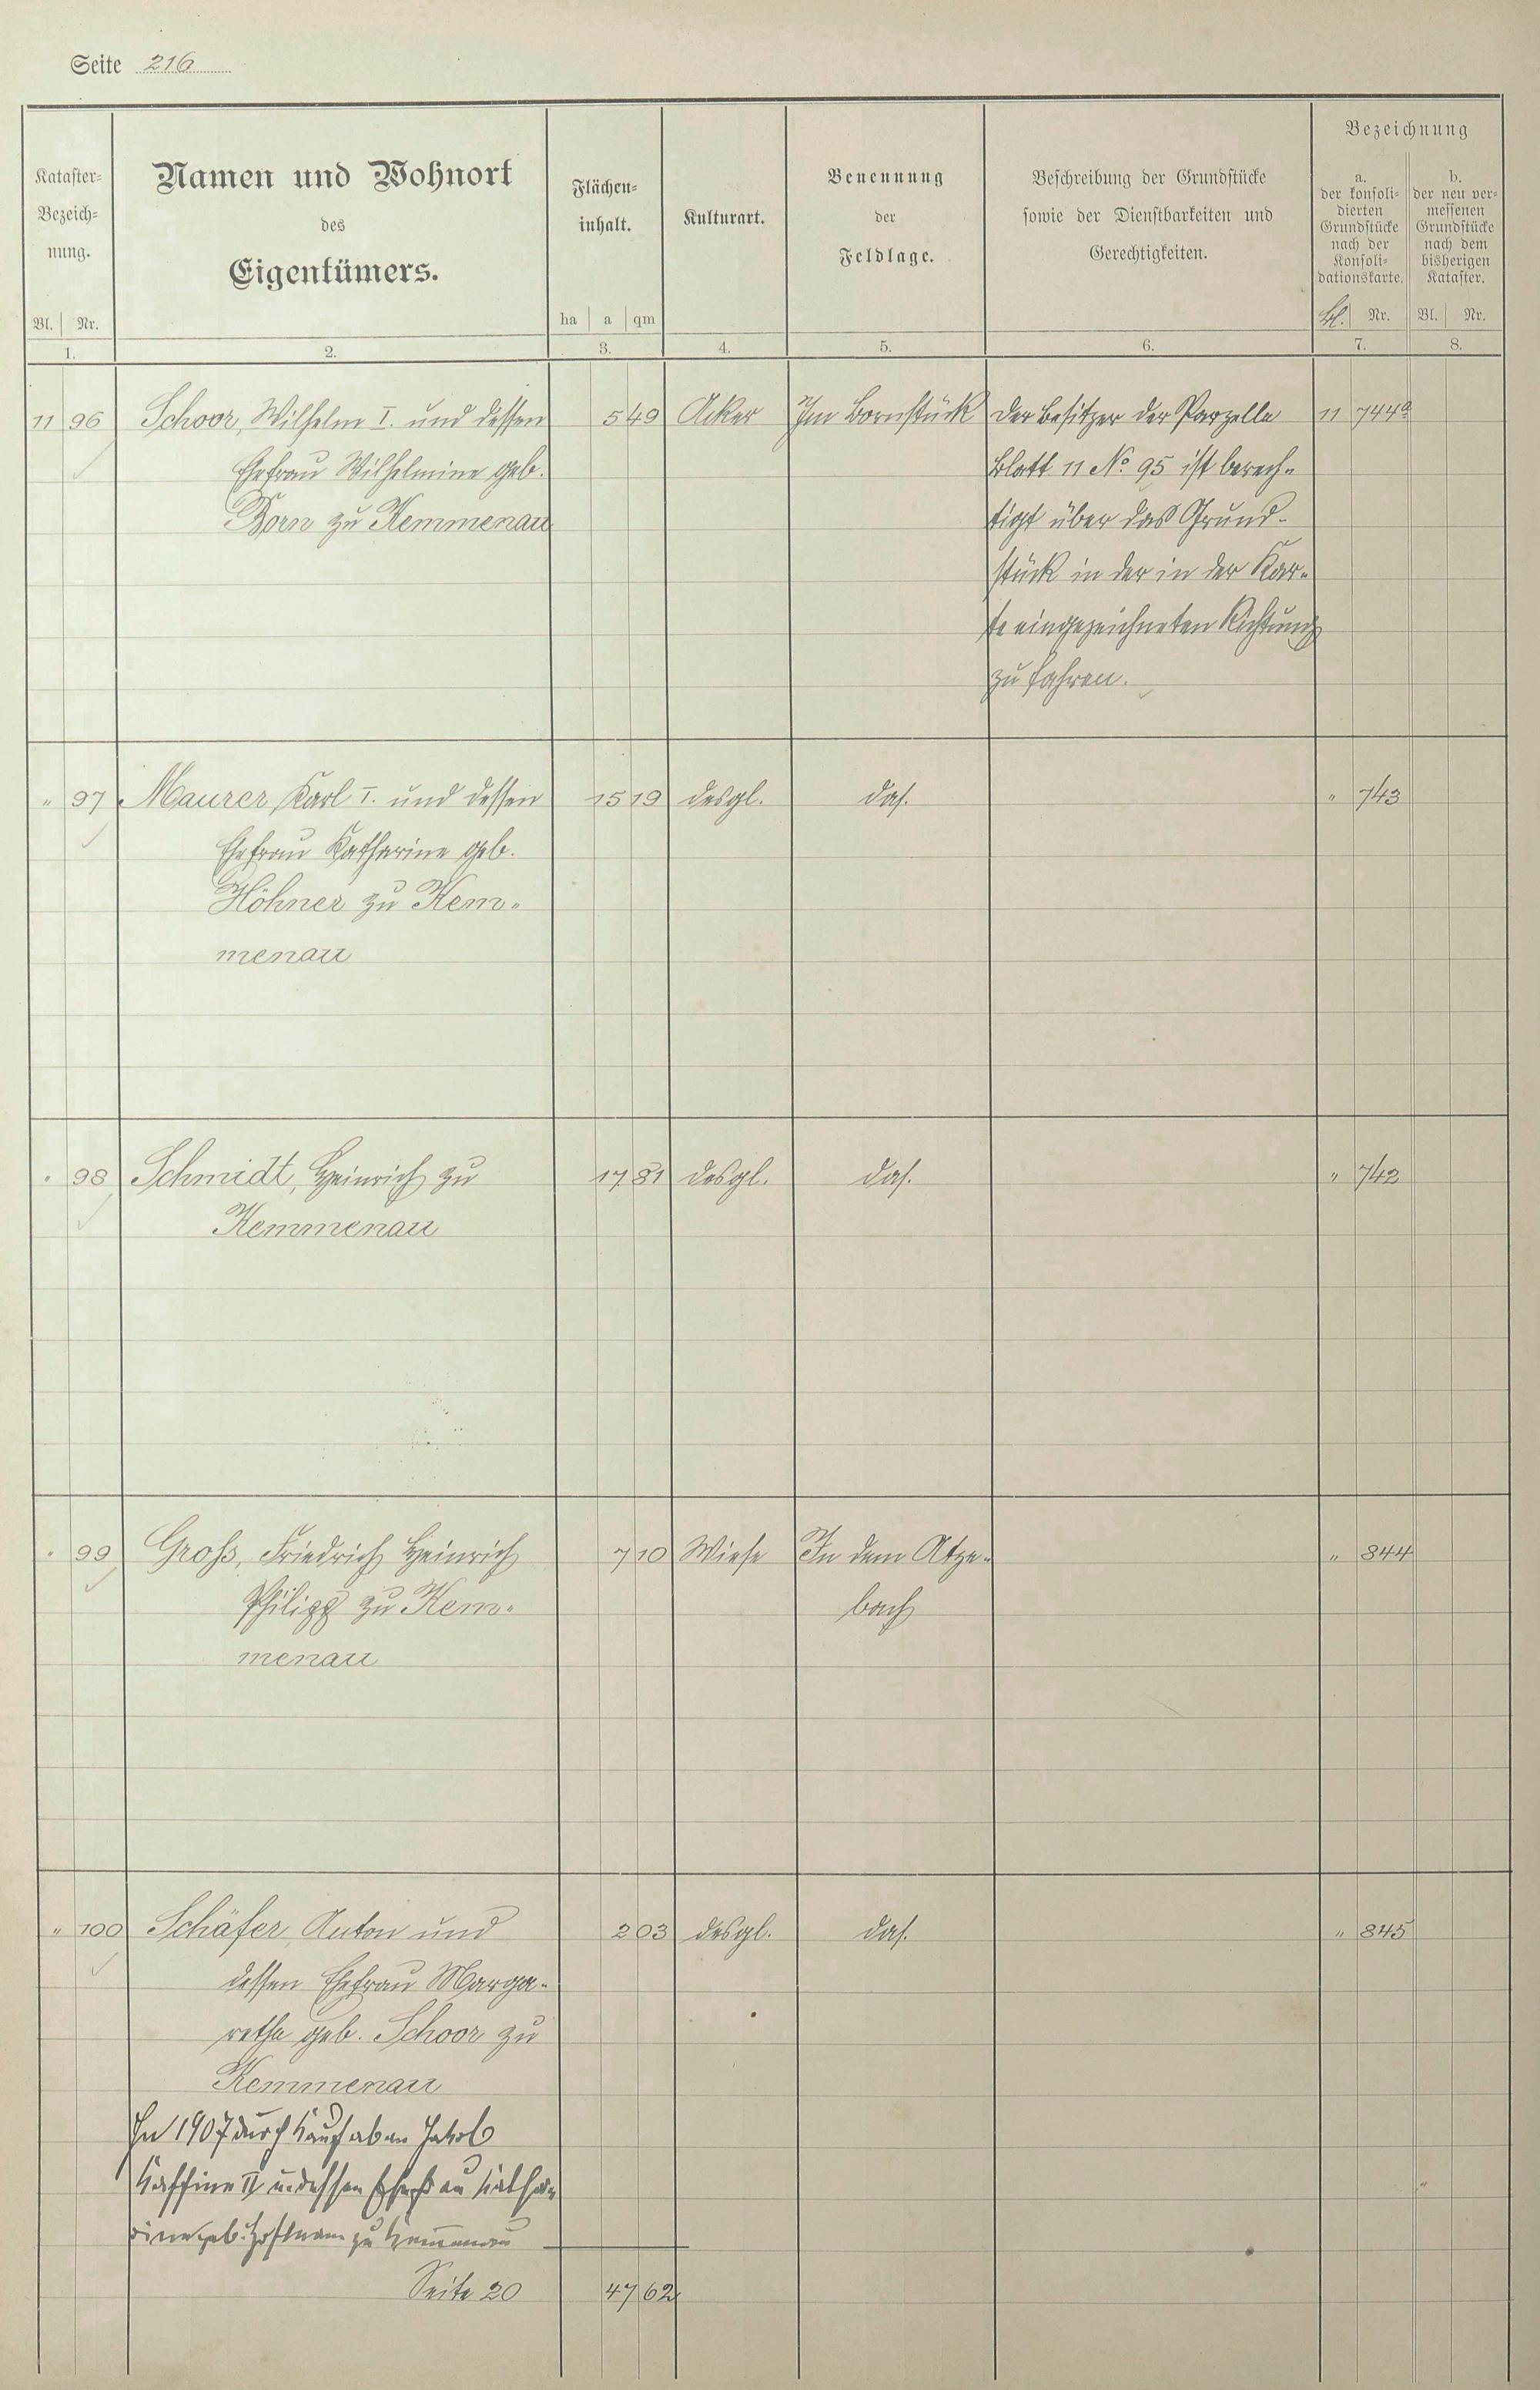 Seite 216
Kataster-
Bezeich-
nung.
Bl. Nr.
1.
Namen und Wohnort
des
Eigentümers.
2.
Flächen-
inhalt.
ha a qm
3.
Kulturart.
4.
Benennung
der
Feldlage.
5.
Beschreibung der Grundstücke
sowie der Dienstbarkeiten und
Gerechtigkeiten.
6.
Bezeichnung
a.
der konsoli-
dierten
Grundstücke
nach der
Konsoli-
dationskarte.
Bl. Nr.
7.
b.
der neu ver-
messenen
Grundstücke
nach dem
bisherigen
Kataster.
Bl. Nr.
8.
11 96 Schoor, Wilhelm I. und dessen 5 49 Acker Im Bornstück Der Besitzer der Parzelle 11 744a
Ehefrau Wilhelmine geb. Blatt 11 No 95 ist berech-
Born zu Kemmenau tigt über das Grund-
stück in der in der Kar-
te eingezeichneten Richtung
zu fahren.
" 97 Maurer, Karl I. und dessen 15 19 desgl. das. " 743
Ehefrau Katharine geb.
Höhner zu Kem-
menau
" 98 Schmidt, Heinrich zu 17 81 desgl. das. " 742
Kemmenau
" 99 Groß, Friedrich Heinrich 7 10 Wiese In dem Atze- " 844
Philipp zu Kem- bach
menau
" 100 Schäfer, Anton und 2 03 desgl. das. " 845
dessen Ehefrau Marga-
retha geb. Schoor zu
Kemmenau
In 1907 durch Kauf ab an Jakob
II u. dessen Ehefrau Katha-
rine geb. zu Kemmenau
Seite 20 47 62